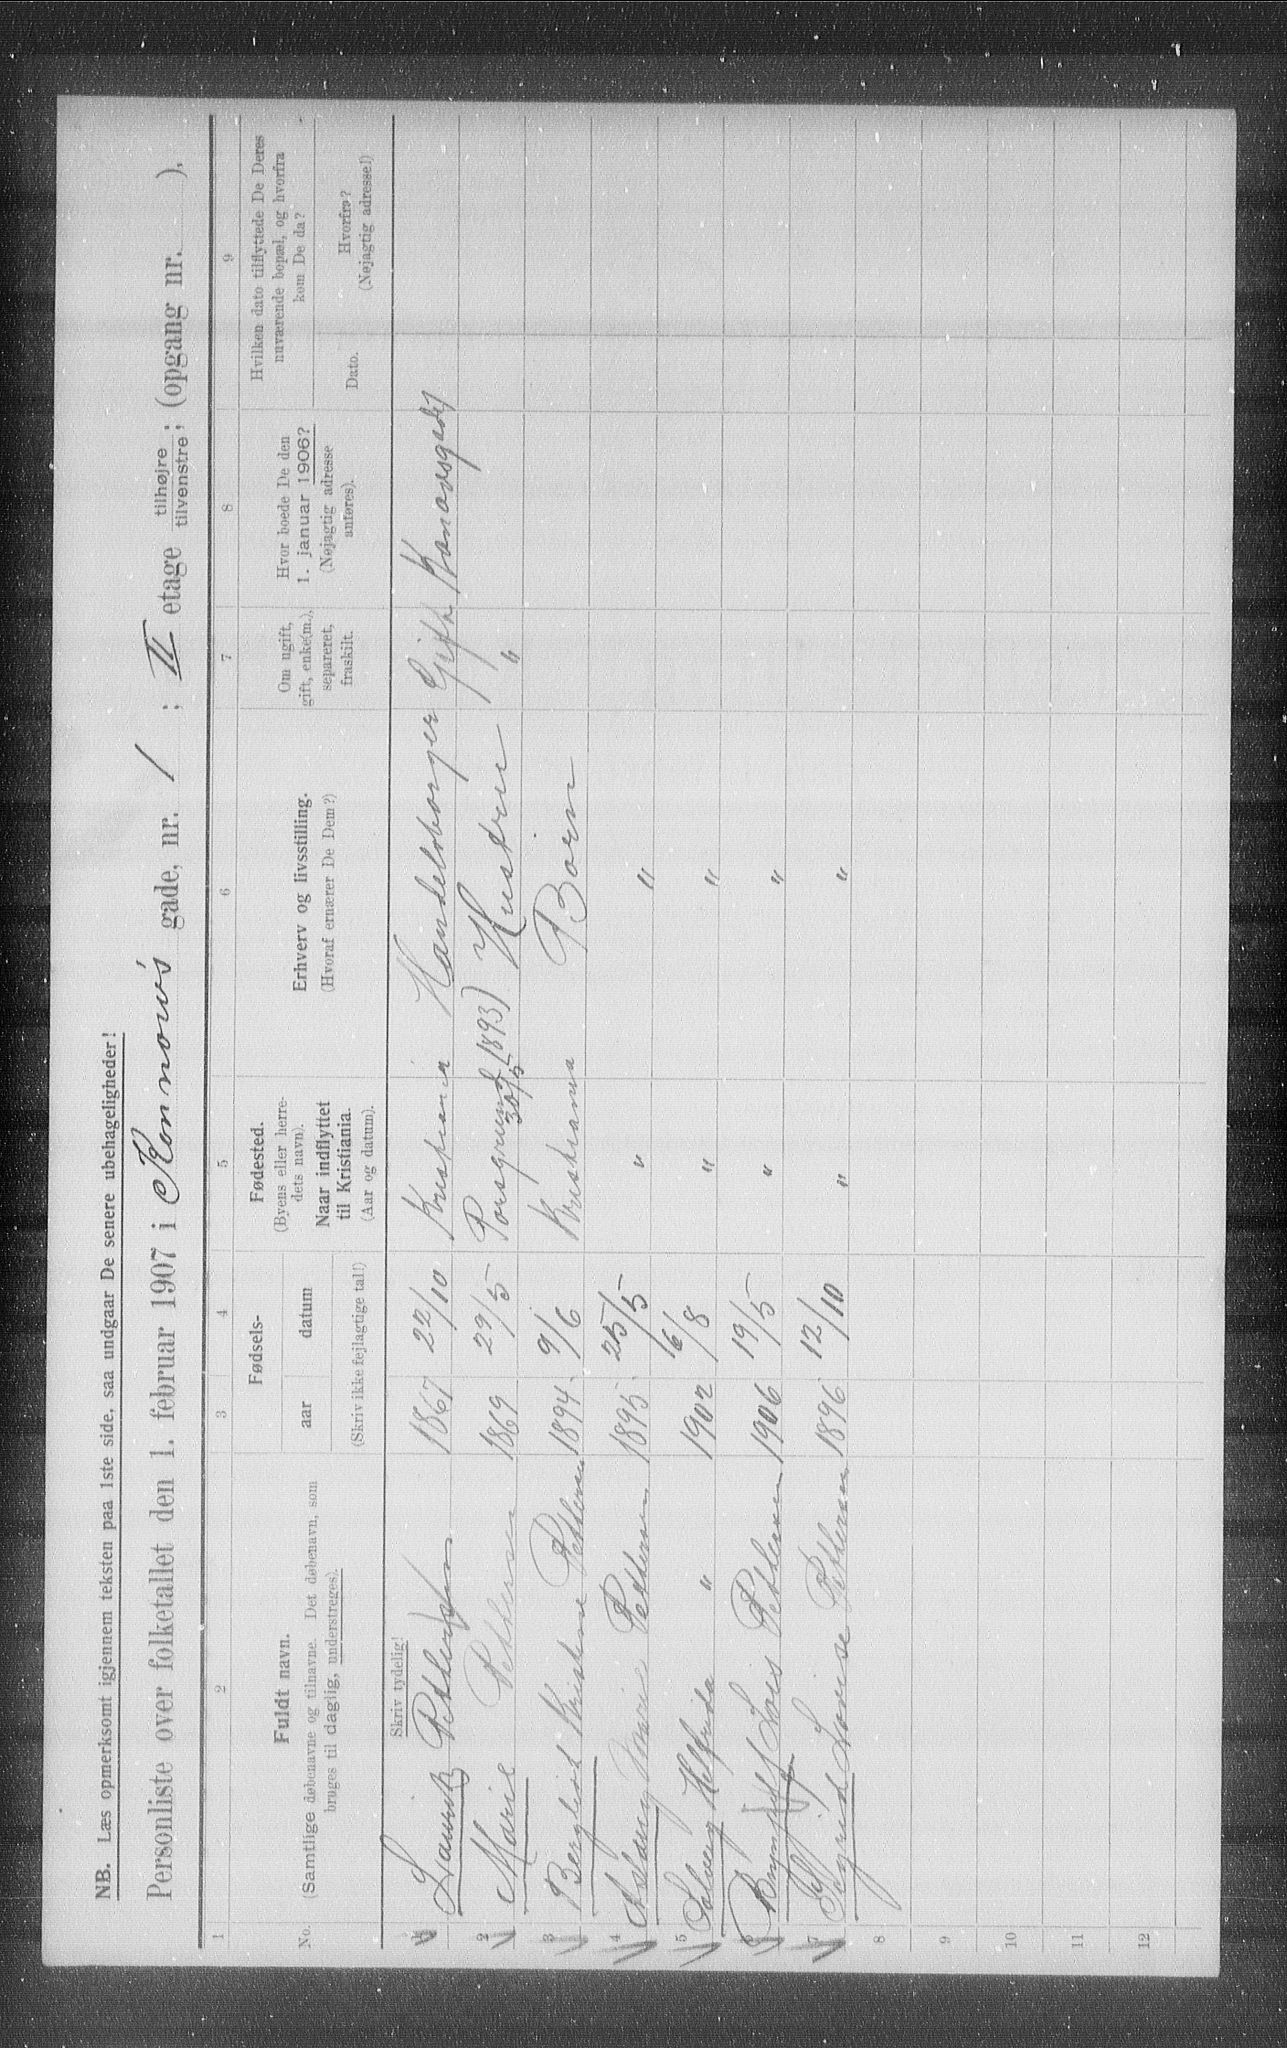 NB. Læs opmerksomt igjennem teksten paa 1ste side, saa undgaar De senere ubehageligheder!
Personliste over folketallet den 1. februar 1907 i Konnow's gade, nr. 1 ; II etage tilhøjre / tilvenstre; (opgang nr. ),
1 2 3 4 5 6 7 8 9
No.
Fuldt navn.
(Samtlige døbenavne og tilnavne. Det døbenavn, som
bruges til daglig, understreges).
Fødsels-
aar datum
(Skriv ikke fejlagtige tal!)
Fødested.
(Byens eller herre-
dets navn).
Naar indflyttet
til Kristiania.
(Aar og datum).
Erhverv og livsstilling.
(Hvoraf ernærer De Dem?)
Om ugift,
gift, enke(m.),
separeret,
fraskilt.
Hvor boede De den
1. januar 1906?
(Nøjagtig adresse
anføres).
Hvilken dato tilflyttede De Deres
nuværende bopæl, og hvorfra
kom De da?
Dato.
Hvorfra?
(Nøjagtig adresse!)
Skriv tydelig!
1 Lauritz Pettersen 1867 22/10 Kristiania Handelsborger Gift Konowsgade 1
2 Marie Pettersen 1869 29/5 Porsgrund 30/5 1893) Hustru "
3 Bergliot Kristine Pettersen 1894 9/6 Kristiania Børn
4 Aslaug Marie Pettersen 1895 25/5 " "
5 Solveig Helfrida " 1902 6/8 " "
6 Brynjulf Lars Pettersen 1906 19/5 " "
7 Sigrid Lovise Pettersen 1896 12/10 " "
8
9
10
11
12